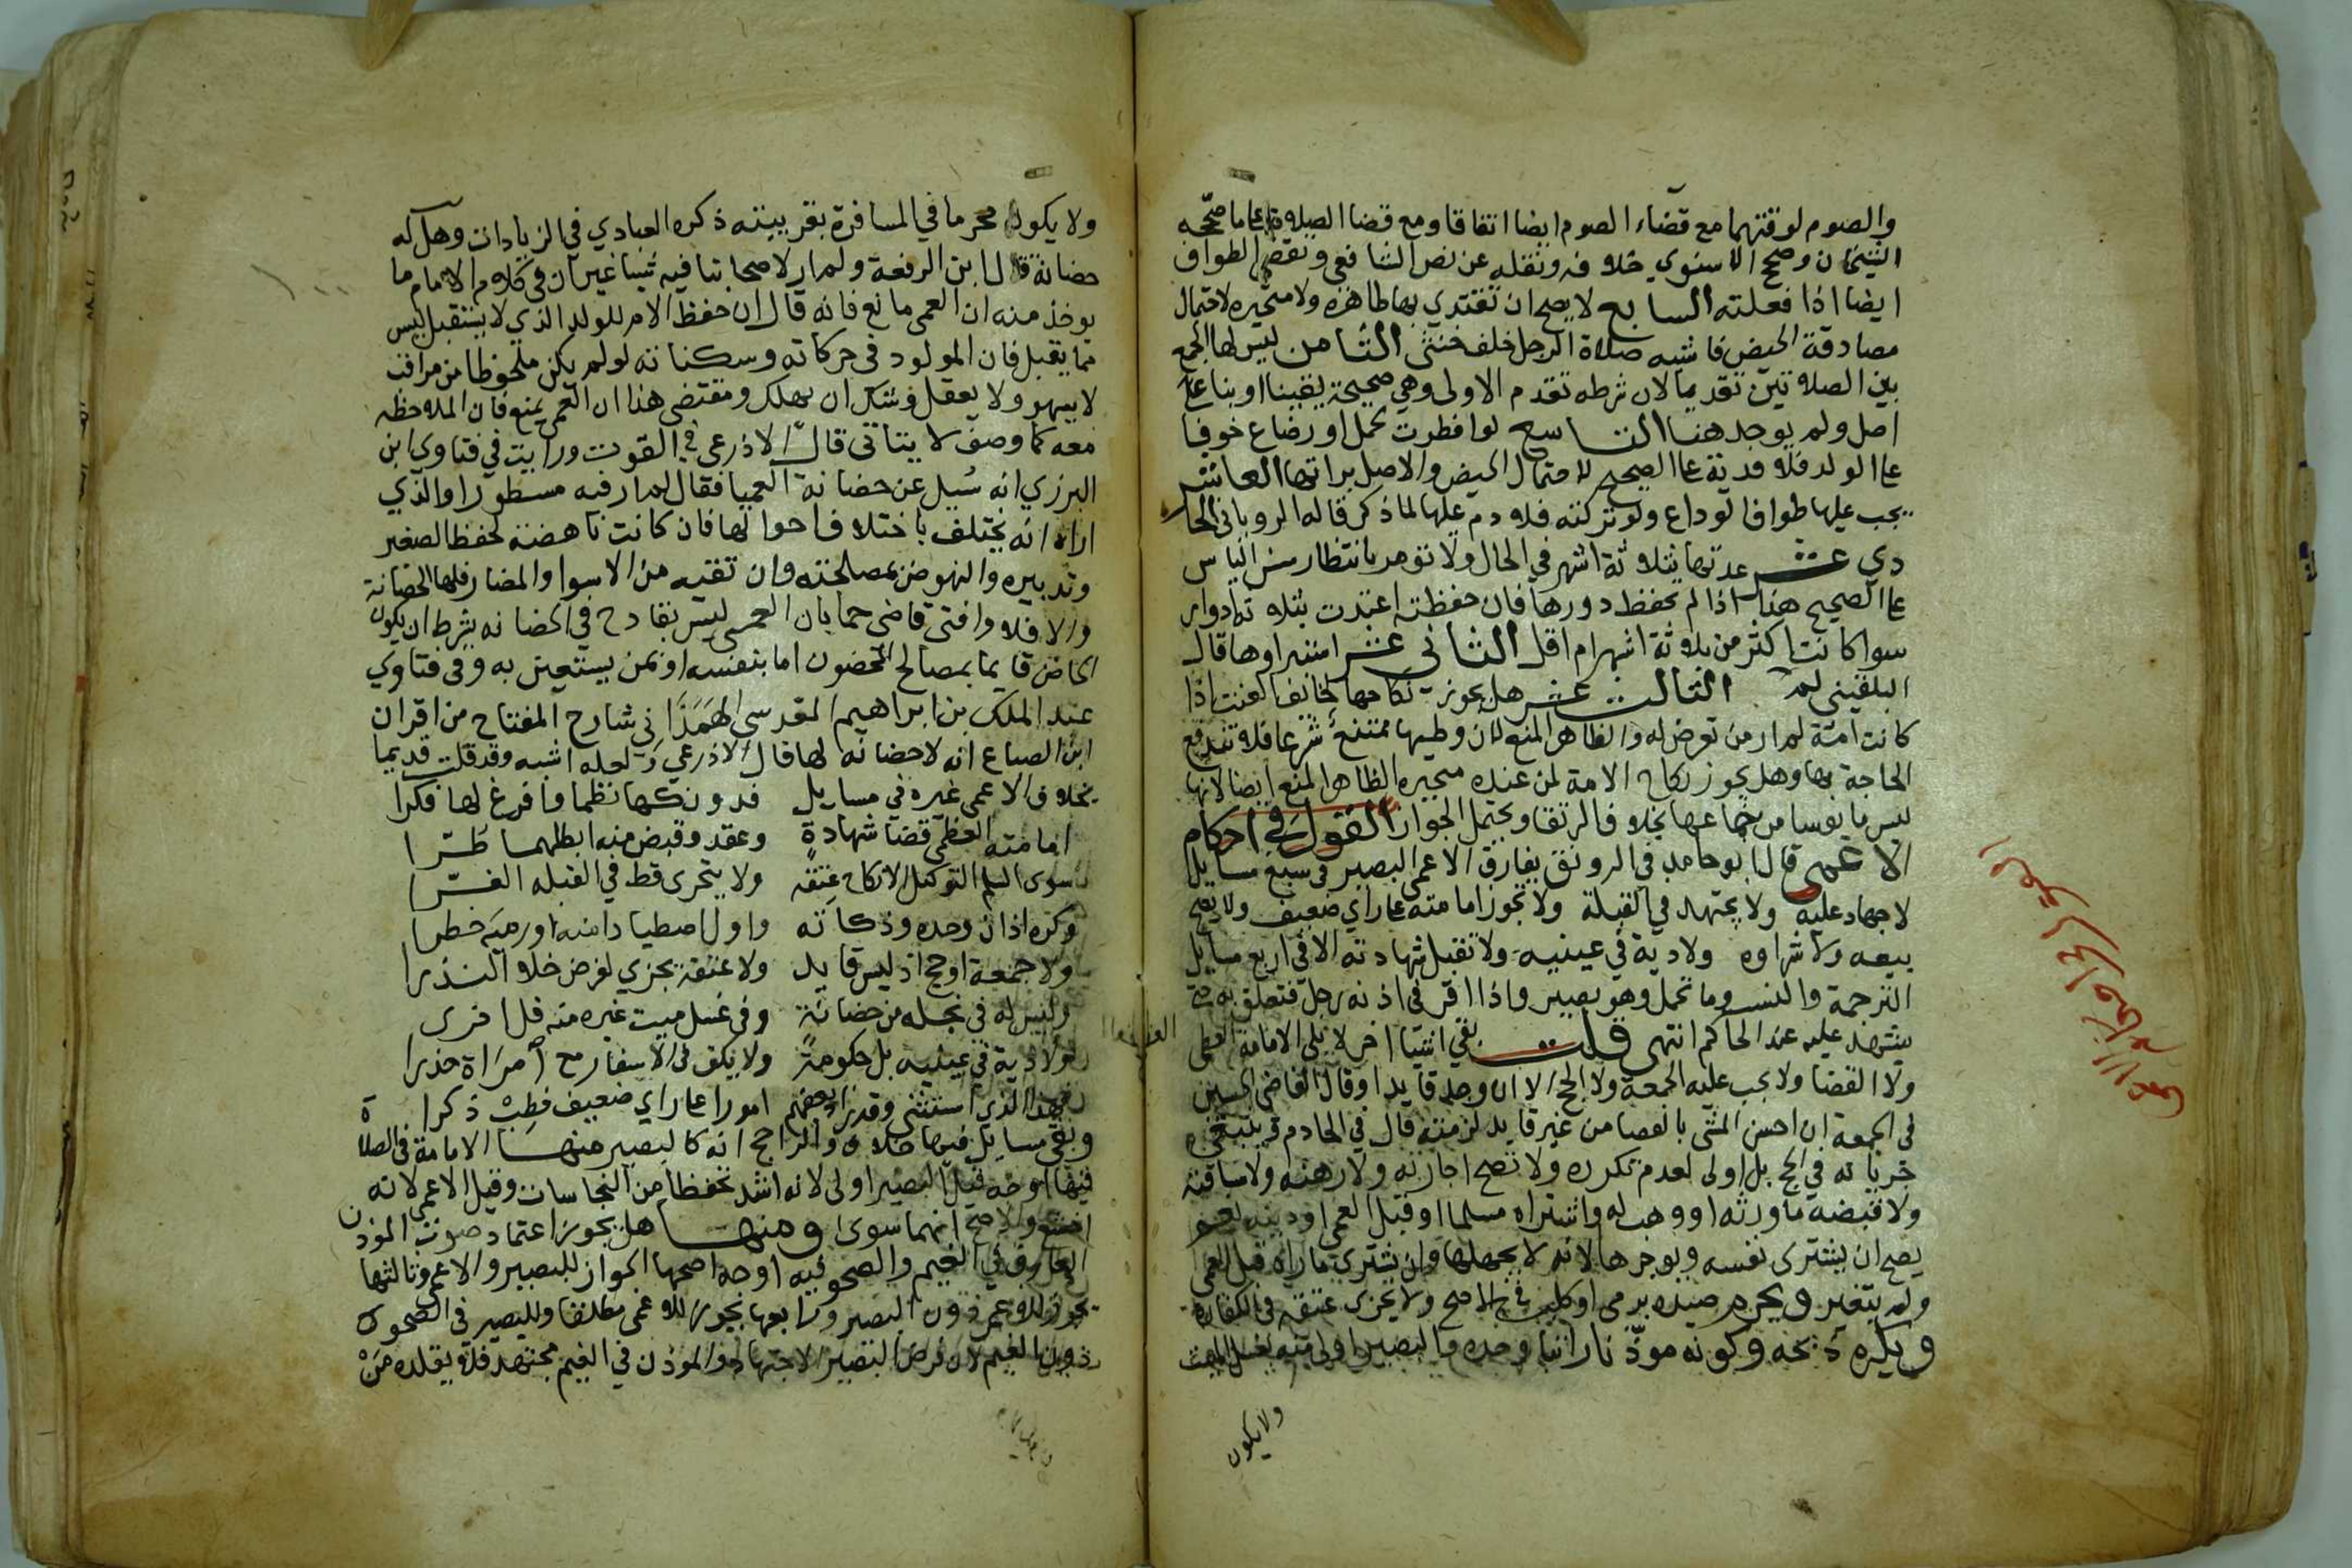 والصوم لوقتهما مع قضاء الصوم ايضا اتفاقا ومع قضا الصلاة على ما صححه
الشيخان وصحح الاسنوي خلافه ونقله عن نص الشافعي ونقض الطواف
ايضا اذا فعلته السابع لا يصح ان تقتدي بها طاهرة ولا متحيره لاحتمال
مصادقة الحيض فاشبه صلاة الرجل خلف خنثى الثامن ليس لها الجمع
بين الصلاتين تقديما لان شرطه تقدم الاولى وهي صحيحة يقينا او بنا على
اصل ولم يوجد هنا التاسع لو افطرت لحمل او رضاع خوفا
على الولد فلا فدية على الصحيح لاحتمال الحيض والاصل براتها العاشر
يجب عليها طواف الوداع ولو تركته فلا دم عليها لما ذكر قاله الروياني الحا
دي عشر عدتها بثلاثة اشهر في الحال ولا تومر بانتظار سن الياس
على الصحيح هذا اذا لم تحفظ دورها فان حفظته اعتدت بثلاثة ادوار
سوا كانت اكثر من ثلاثة اشهر ام اقل الثاني عشر استبراوها قال
البلقيني لم الثالث عشر هل يجوز نكاحها لخائف العنت اذا
كانت امة لم ار من تعرض له والظاهر المنع لان وطيها ممتنع شرعا فلا تندفع
الحاجة بها وهل يجوز نكاح الامة لمن عنده متحيره الظاهر المنع ايضا لانها
ليس مايوسا من جماعها بخلاف الرتقا ويحتمل الجواز القول في احكام
الاعمى قال ابو حامد في الرونق يفارق الاعمى البصير في سبع مسايل
لا جهاد عليه ولا يجتهد في القبلة ولا تجوز امامته على راي ضعيف ولا يصح
بيعه ولا شراوه ولا دية في عينيه ولا تقبل شهادته الا في اربع مسايل
الترجمة والنسب وما تحمل وهو بصير واذا اقر في اذنه رجل فتعلق به حتى
يشهد عليه عند الحاكم انتهى قلت بقي اشيا اخر لا يلي الامامة العظمى
ولا القضا ولا يجب عليه الجمعة ولا الحج الا ان وجد قايدا وقال القاضي الحسين
في الجمعة ان احسن المشي بالعصا من غير قايد لزمته قال في الخادم
جريانه في الحج بل اولى لعدم تكرره ولا تصح اجازته ولا رهنه ولا مساقاته
ولا قبضه ما ورثه او وهب له او اشتراه سلما او قبل العمى او دينه نعم
يصح ان يشتري نفسه ويوجرها لانه لا يجهلها وان يشتري ما راه قبل العمى
ولم يتغير ويحرم صيده برمي او كلب في الاصح ولا يجزي عتقه في الكفارة
ويكره ذبحه وكونه موذنا راتبا وحده والبصير اولى منه بغسل الميت
ولا يكون
القول في احكام الاعمى
ولا يكون محرما في المسافرة بقريبته ذكره العبادي في الزيادات وهل له
حضانة قال ابن الرفعة ولم ار لاصحابنا فيه شيا غير ان في كلام الامام ما
يوخذ منه ان العمى مانع فانه قال ان حفظ الام للولد الذي لا يستقبل ليس
مما يقبل فان المولود في حركاته وسكناته لو لم يكن ملحوظا من مراقب
لا يسهو ولا يغفل فوشك ان يهلك ومقتضى هذا ان العمى يمنع فان الملاحظه
معه كما وصف لا يتاتى قال الاذرعي في القوت ورايت في فتاوى ابن
البرزي انه سيل عن حضانة العميا فقال لم ار فيه مسطورا والذي
اراه انه يختلف باختلاف احوالها فان كانت ناهضة لحفظ الصغير
وتدبيره والنهوض بمصلحته وان تقيه من الاسوا والمضار فلها الحضانة
والا فلا وافتى قاضي حما بان العمى ليس بقادح في الحضانه بشرط ان يكون
الحاضن قايما بمصالح المحضون اما بنفسه او بمن يستعين به وفي فتاوي
عبد الملك بن ابراهيم المقدسي الهمذاني شارح المفتاح من اقران
ابن الصباغ انه لا حضانه لها قال الاذرعي ولعله اشبه وقد قلت قديما
يخالف الاعمى غيره في مسايل فدونكها نظما وافرغ لها فكرا
امامته العظمى قضا شهادة وعقد وقبض منه ابطلهما طرا
سوى السلم التوكيل لانكاح عتقه ولا يتحرى قط في القبله الغرا
وكره اذان وحده وذكاته واول اصطيادا منه او رميه خطرا
ولا جمعة او حج اذ ليس قايد ولا عتقه يجزي لفرض خلا النذرا
وليس له في نجله من حضانة وفي غسل ميت غيره منه قل احرى
ولا دية في عينيه بل حكومة ولا يكف في الاسفار مع امراة خدرا
فهذا الذي استثني وقد زاد بعضهم امورا على راي ضعيف فطب ذكرا
وبقي مسايل فيها خلاف والراجح انه كالبصير منها الامامة في الصلاة
فيها اوجه قيل البصير اولى لانه اشد تحفظا من النجاسات وقيل الاعمى لانه
اخشع والاصح انهما سوى ومنها هل يجوز اعتماد صوت الموذن
العارف في الغيم والصحو فيه اوجه اصحها الجواز للبصير والاعمى وثالثها
يجوز للاعمى دون البصير ورابعها يجوز للاعمى مطلقا وللبصير في الصحو
دون الغيم لان فرض البصير الاجتهاد والموذن في الغيم مجتهد فلا يقلده من